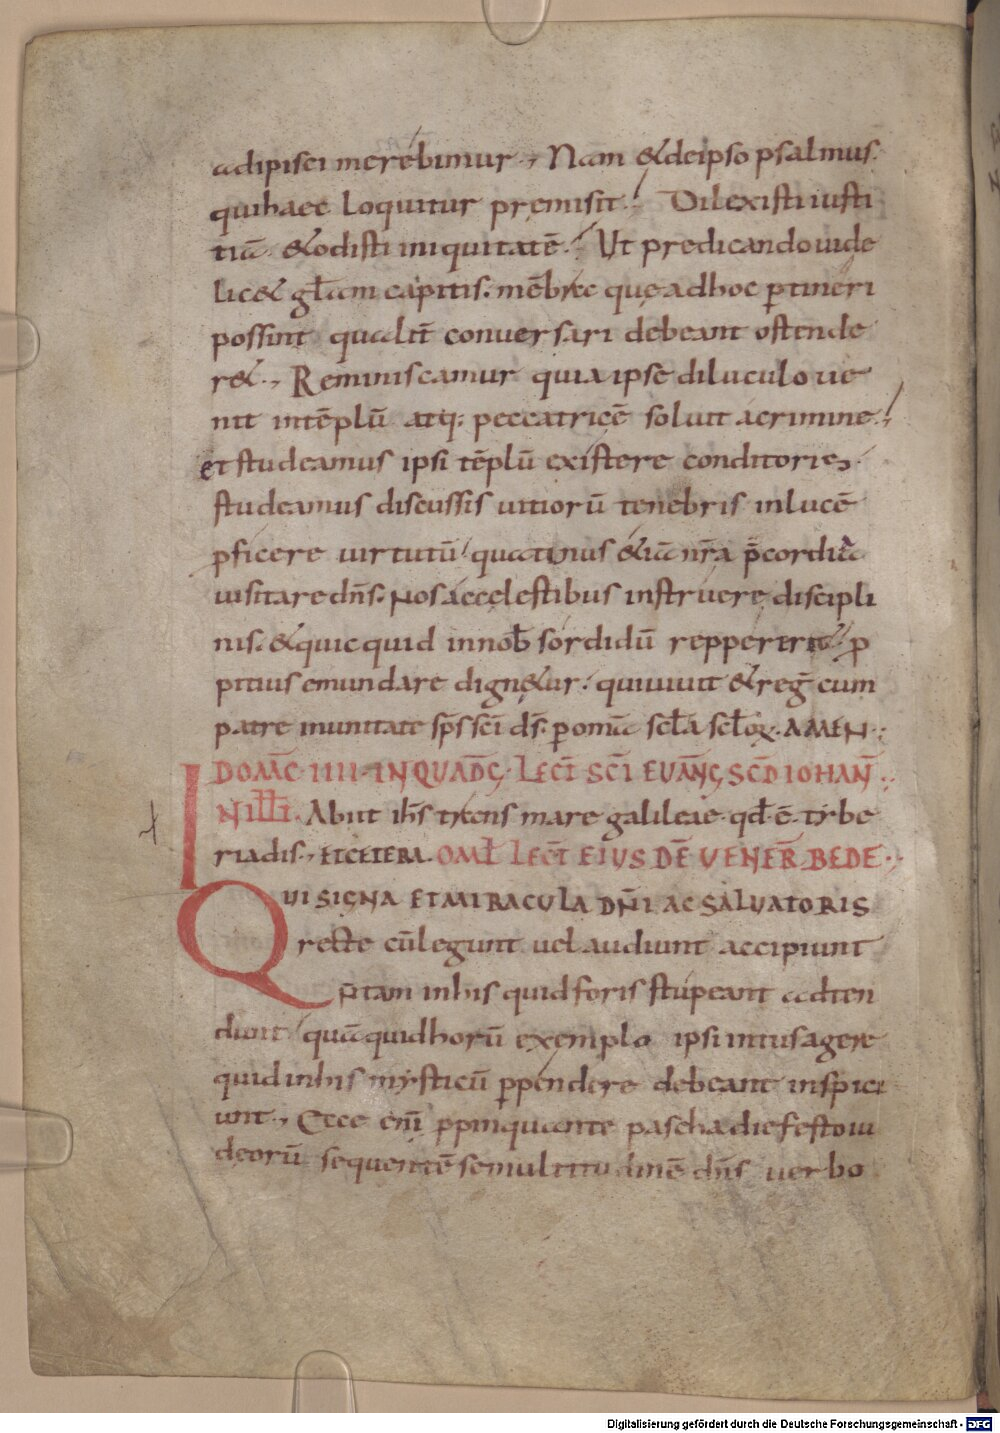 adipisci merebimur ., Nam & deipso psalmus.
qui haec loquitur premisit. Dilexisti iusti
tiā & odisti iniquitatē. Ut predicando uide
lic& gl̄am capitis. mēbrec que adhoc ꝑtineri
possint qualit̄ conversari debeant ostende
r&., Reminiscamur quia ipse diluculo ue
nit intēplū atq; peccatricē soluit acrimine.
et studeamus ipsi tēplū existere conditoris.
studeamus discussis uitiorū tenebris inlucē
ꝓficere uirtutū quatinus &iā nr̄a p̄cordia
uisitare dn̄s. Nos accelestibus instruere discipli
nis. & quic quid innob̄ sordidū reppererit ꝓ
pitius emundare dign&ur. qui uiuit & reḡ cum
patre in unitate sp̄s sc̄i ds̄. ꝑ omīa scl̄a scl̄oꝝ. AMEN.
DOM̄C IIII IN QUAD̄G LECT̄ SC̄I EUANḠ SC̄D IOHAN̄.
N ILL̄I. Abiit ih̄s trans mare galileae qd̄ ē tybe
riadis., ETCETERA. OML̄ LECT̄ EIUS DĒ UENER̄ BEDE.
QUI SIGNA ET MIRACULA DN̄I AC SALUATORIS
recte cū legunt uel audiunt accipiunt
n̄ tam in his quid foris stupeant adten
dunt quā quid horū exemplo ipsi intus agere
quid in his mysticū ꝑpendere debeant inspici
unt., Ecce eni ̄ ꝓpinquante pascha die festo iu
deorū sequentē se multitudinē dn̄s uerbo
Digitalisierung gefördert durch die Deutsche Forschungsgemeinschaft - DFG